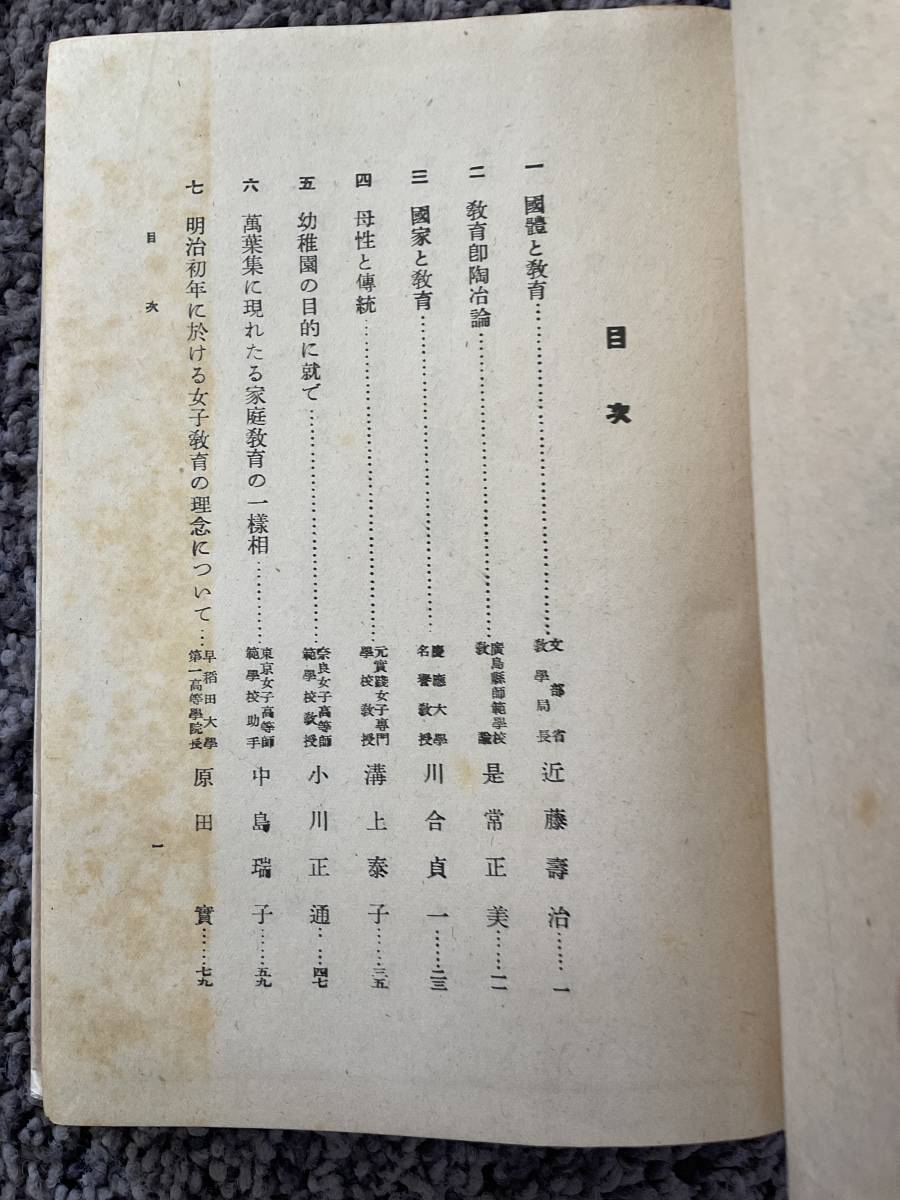 目次
一 國體と敎育……文部省敎學局長 近藤壽治……一
二 敎育卽陶冶論……廣島縣師範學校敎諭 是常正美……一一
三 國家と敎育……慶應大學名譽敎授 川合貞一……二三
四 母性と傳統……元實踐女子專門學校敎授 溝上泰子……三五
五 幼稚園の目的に就て……奈良女子高等師範學校敎授 小川正通……四七
六 萬葉集に現れたる家庭敎育の一樣相……東京女子高等師範學校助手 中島瑞子……五九
七 明治初年に於ける女子敎育の理念について……早稻田大學第一高等學院長 原田實……七九
目次 一